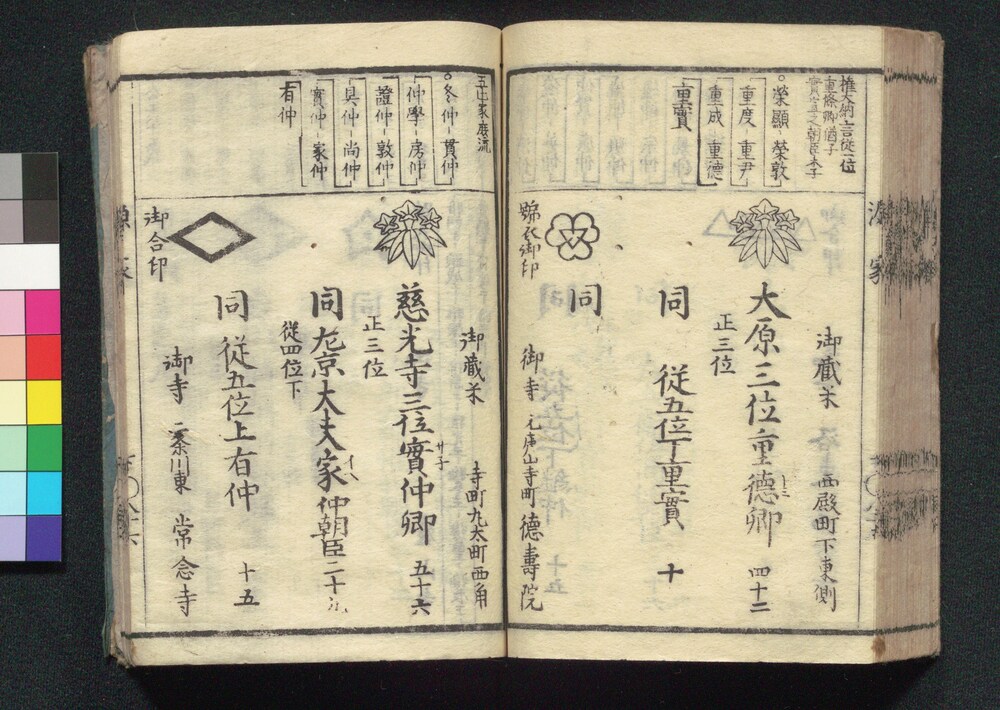 源家
權大納言従一位
重條卿猶子
實富之朝臣末子
榮顯 榮敦
重度 重尹
重成 重德
重實
御藏米 西殿町下東側
大原三位重德卿 四十二
正三位
同 従五位下重實 十
同
御寺 元庚山寺町 德壽院
御印
五辻家庶流
冬仲 貫仲
仲學 房仲
證仲 敦仲
具仲 尚仲
實仲 家仲
有仲
御藏米 寺町丸太町西角
慈光寺三位實仲卿 五十六
サ子
正三位
同 左京大夫家仲朝臣 二十九
イヘ
従四位下
同 従五位上有仲 十五
御寺 二条川東 常念寺
御合印